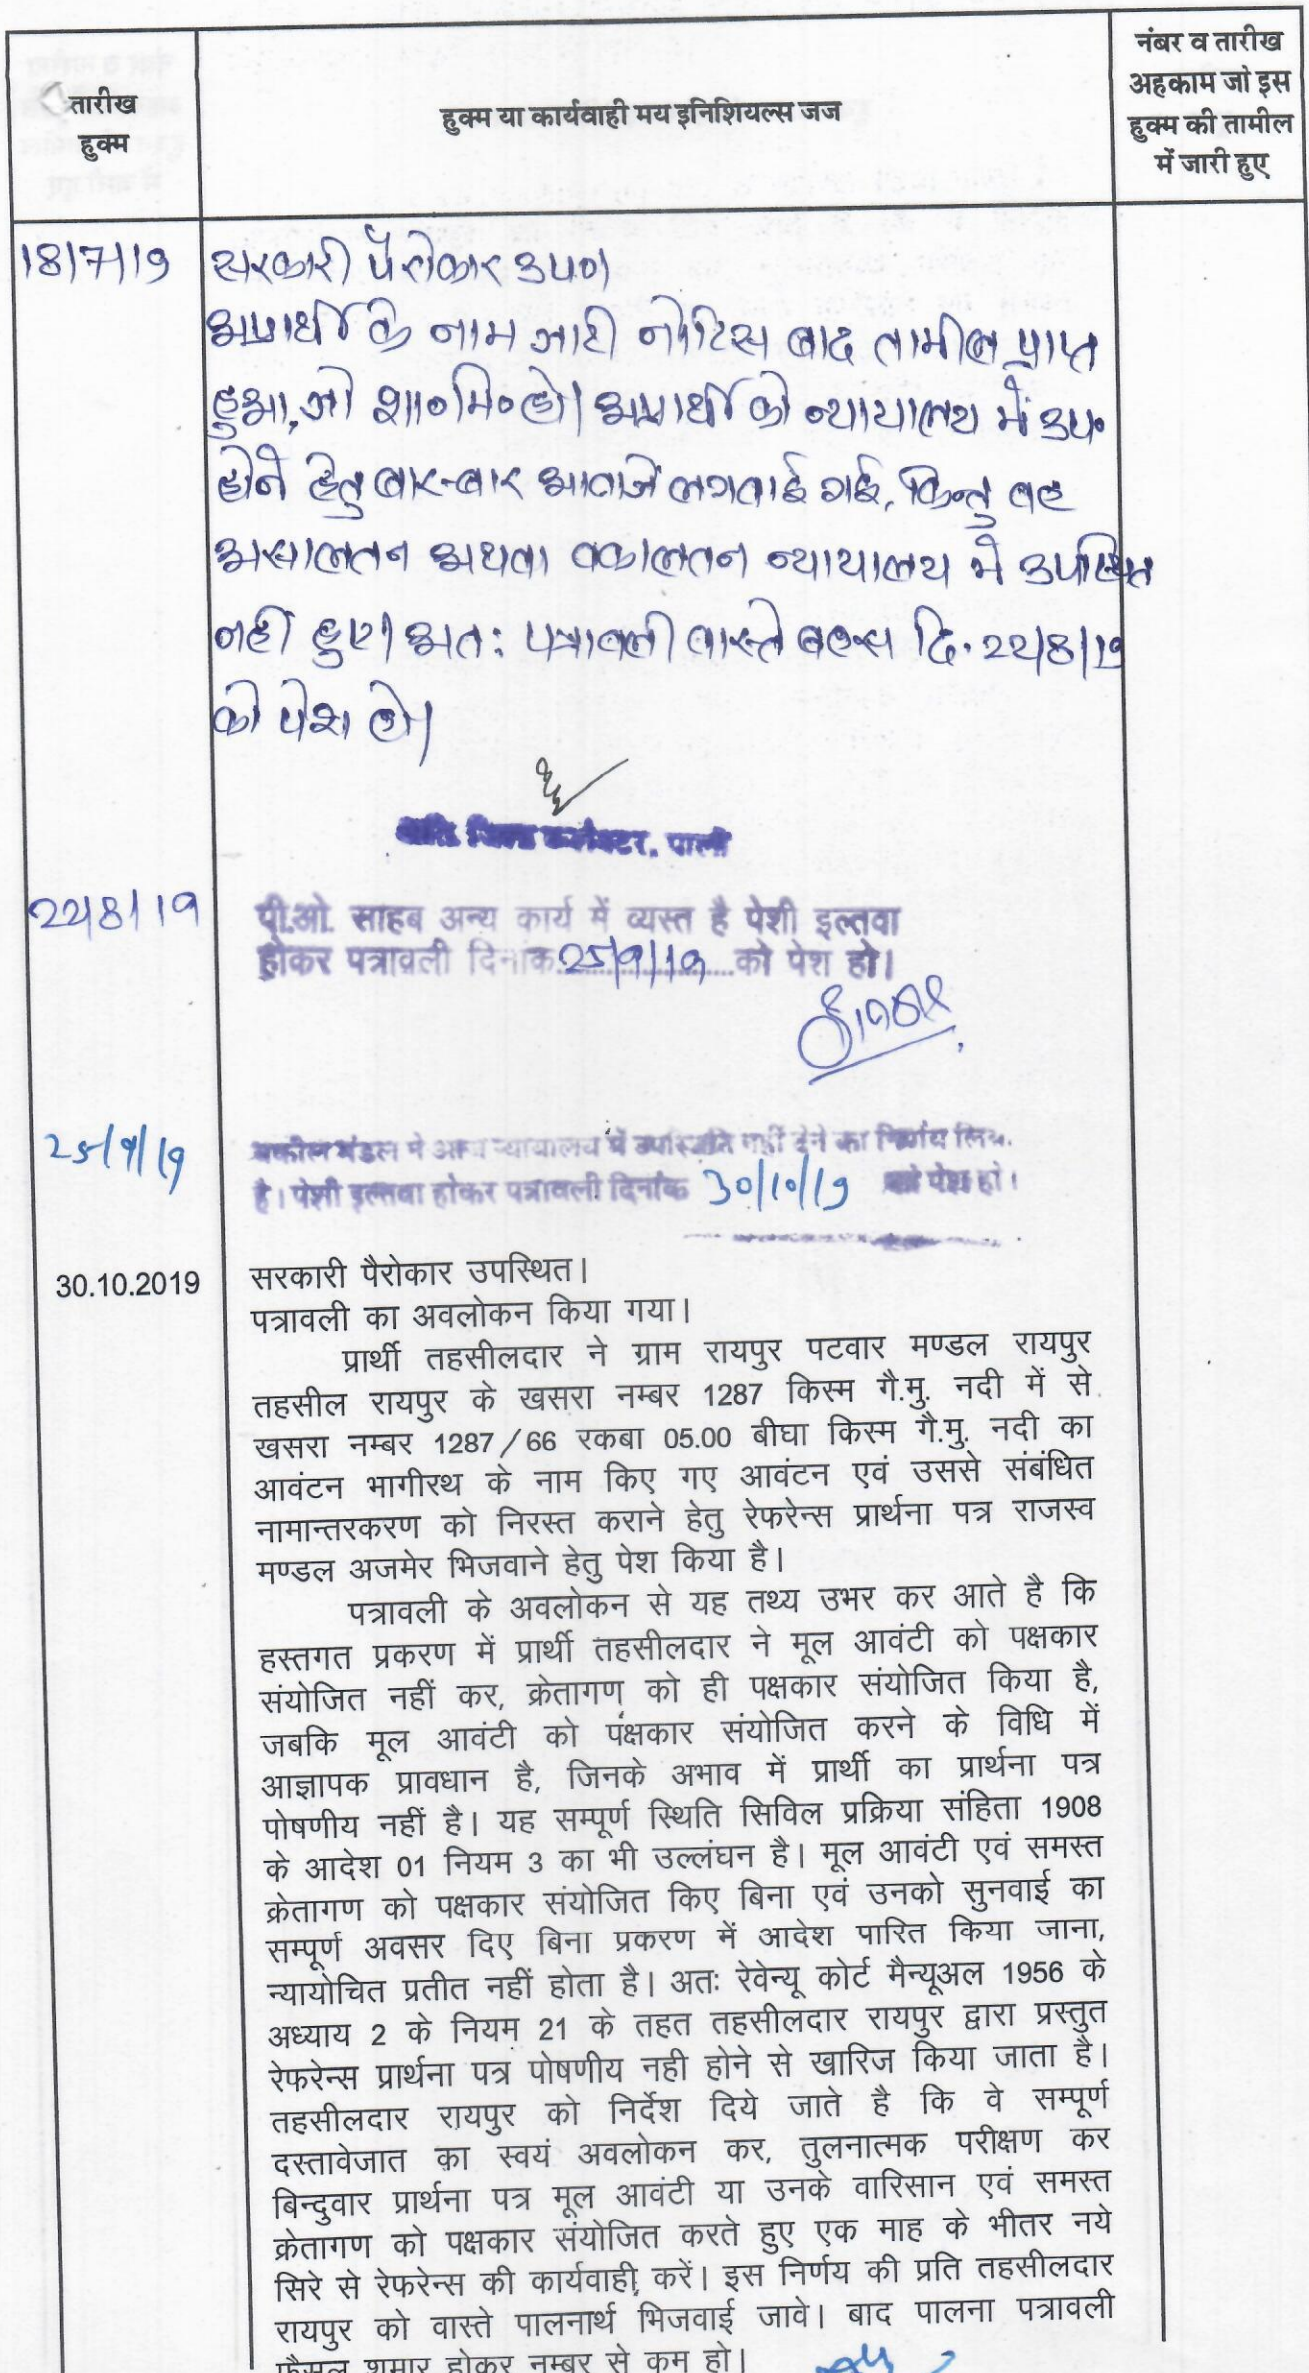 तारीख
हुक्म
हुक्म या कार्यवाही मय इनिशियल्स जज
नंबर व तारीख
अहकाम जो इस
हुक्म की तामील
में जारी हुए
18/7/19
सरकारी पैरोकार उप०।
अप्रार्थी के नाम जारी नोटिस बाद तामील प्राप्त
हुआ, जो शा०मि०हो। अप्रार्थी को न्यायालय में उप०
होने हेतु बार-बार आवाजें लगवाई गई, किन्तु वह
असालतन अथवा वकालतन न्यायालय में उपस्थित
नहीं हुए। अतः पत्रावली वास्ते बहस दि. 22/8/19
को पेश हो।
अति. जिला कलेक्टर, पाली
22/8/19
पी.ओ. साहब अन्य कार्य में व्यस्त है पेशी इल्तवा
होकर पत्रावली दिनांक 25/9/19 को पेश हो।
25/9/19
वकील मंडल ने आज न्यायालय में उपस्थिति नहीं देने का निर्णय लिया
है। पेशी इल्तवा होकर पत्रावली दिनांक 30/10/19 को पेश हो।
30.10.2019
सरकारी पैरोकार उपस्थित।
पत्रावली का अवलोकन किया गया।
प्रार्थी तहसीलदार ने ग्राम रायपुर पटवार मण्डल रायपुर
तहसील रायपुर के खसरा नम्बर 1287 किस्म गै.मु. नदी में से
खसरा नम्बर 1287/66 रकबा 05.00 बीघा किस्म गै.मु. नदी का
आवंटन भागीरथ के नाम किए गए आवंटन एवं उससे संबंधित
नामान्तरकरण को निरस्त कराने हेतु रेफरेन्स प्रार्थना पत्र राजस्व
मण्डल अजमेर भिजवाने हेतु पेश किया है।
पत्रावली के अवलोकन से यह तथ्य उभर कर आते है कि
हस्तगत प्रकरण में प्रार्थी तहसीलदार ने मूल आवंटी को पक्षकार
संयोजित नहीं कर, क्रेतागण को ही पक्षकार संयोजित किया है,
जबकि मूल आवंटी को पक्षकार संयोजित करने के विधि में
आज्ञापक प्रावधान है, जिनके अभाव में प्रार्थी का प्रार्थना पत्र
पोषणीय नहीं है। यह सम्पूर्ण स्थिति सिविल प्रक्रिया संहिता 1908
के आदेश 01 नियम 3 का भी उल्लंघन है। मूल आवंटी एवं समस्त
क्रेतागण को पक्षकार संयोजित किए बिना एवं उनको सुनवाई का
सम्पूर्ण अवसर दिए बिना प्रकरण में आदेश पारित किया जाना,
न्यायोचित प्रतीत नहीं होता है। अतः रेवेन्यू कोर्ट मैन्यूअल 1956 के
अध्याय 2 के नियम 21 के तहत तहसीलदार रायपुर द्वारा प्रस्तुत
रेफरेन्स प्रार्थना पत्र पोषणीय नही होने से खारिज किया जाता है।
तहसीलदार रायपुर को निर्देश दिये जाते है कि वे सम्पूर्ण
दस्तावेजात का स्वयं अवलोकन कर, तुलनात्मक परीक्षण कर
बिन्दुवार प्रार्थना पत्र मूल आवंटी या उनके वारिसान एवं समस्त
क्रेतागण को पक्षकार संयोजित करते हुए एक माह के भीतर नये
सिरे से रेफरेन्स की कार्यवाही करें। इस निर्णय की प्रति तहसीलदार
रायपुर को वास्ते पालनार्थ भिजवाई जावे। बाद पालना पत्रावली
फैसल शुमार होकर नम्बर से कम हो।